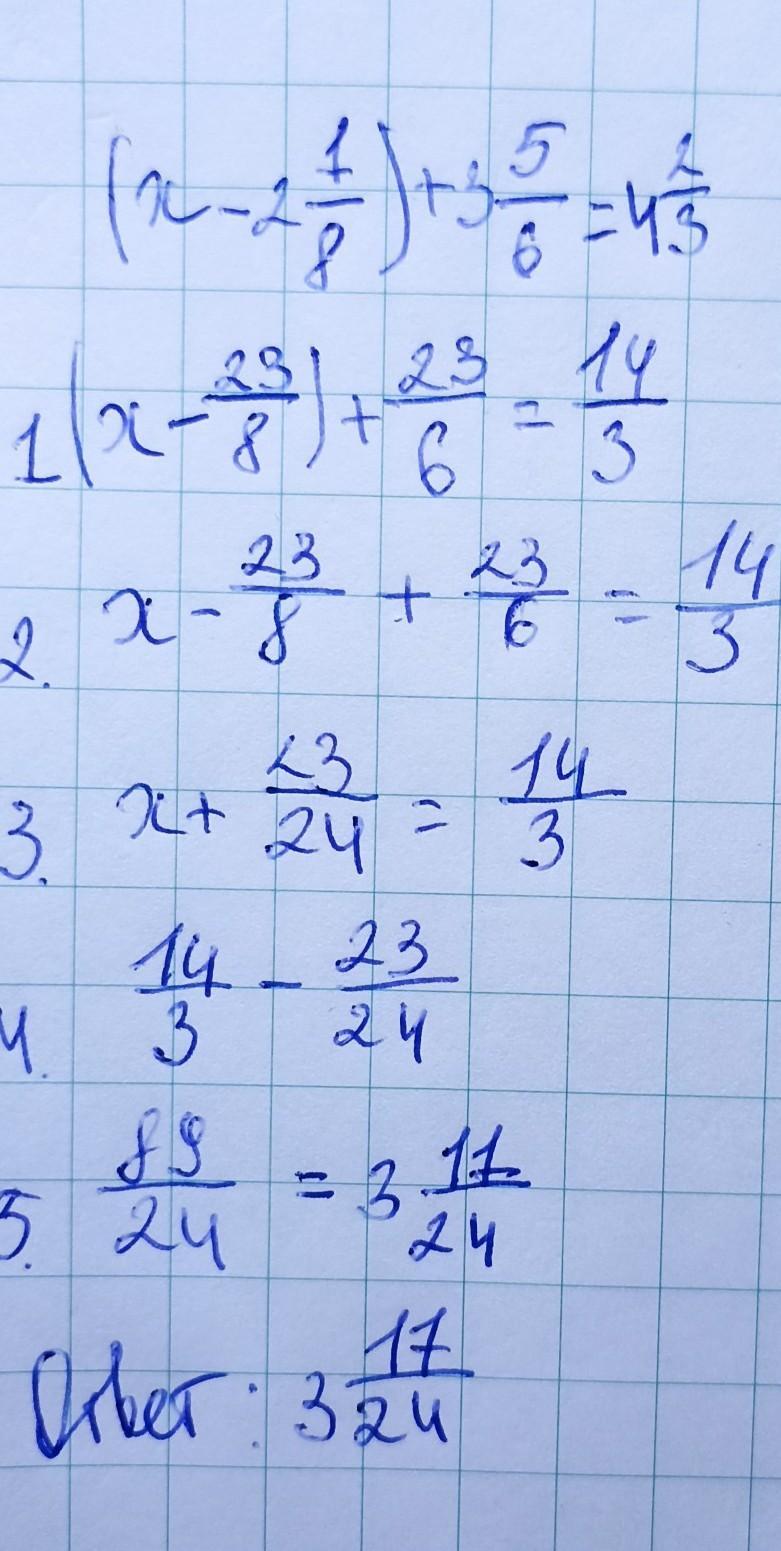 (x - 2 1/8) + 3 5/6 = 4 2/3
1 (x - 23/8) + 23/6 = 14/3
2. x - 23/8 + 23/6 = 14/3
3. x + 23/24 = 14/3
4. 14/3 - 23/24
5. 89/24 = 3 17/24
Ответ: 3 17/24